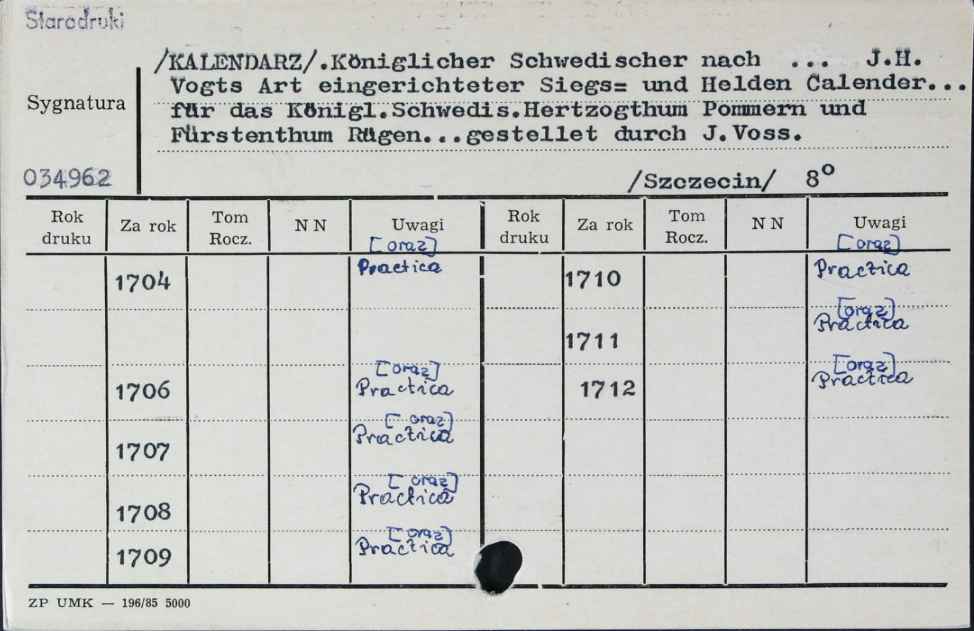 Starodruki
/KALENDARZ/.Königlicher Schwedischer nach ... J.H.
Vogts Art eingerichteter Siegs= und Helden Calender...
für das Königl.Schwedis.Hertzogthum Pommern und
Fürstenthum Rügen...gestellet durch J.Voss.
Sygnatura
034962
/Szczecin/ 8°
Rok druku Za rok Tom Rocz. N N Uwagi Rok druku Za rok Tom Rocz. N N Uwagi
1704 [oraz] Practica 1710 [oraz] Practica
1711 [oraz] Practica
1706 [oraz] Practica 1712 [oraz] Practica
1707 [oraz] Practica
1708 [oraz] Practica
1709 [oraz] Practica
ZP UMK — 196/85 5000